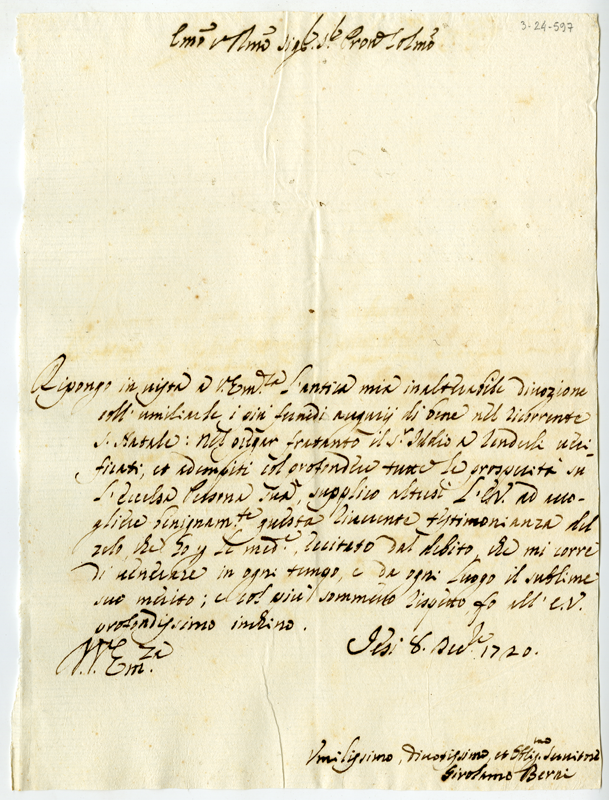 3-24-597
Emo e Rmo Sig.r Sr Pron Colmo
Ripongo in vista a V.Em.za l'antica mia inalterabile divozione
coll'umiliarle i più funedi augurij di bene nel ricorrente
S. Natale: Nel pregar frattanto il S.r Iddio a renderli veri-
ficati, et adempiti col profondere tutte le prosperità su
l'eccelsa Persona Sua, supplico altresì l'E.V. ad acco-
gliere benignam.te questa riverente testimonianza del
zelo, che ho p le med.e, eccitato dal debito, che mi corre
di venerare in ogni tempo, e da ogni luogo il sublime
suo merito; e col più sommesso rispetto fo all'E.V.
profondissimo inchino.
V.Em.za
Jesi 8. Dec.e 1720.
Umilissimo, Divotissimo, et Oblig.mo Servitore
Girolamo Berni